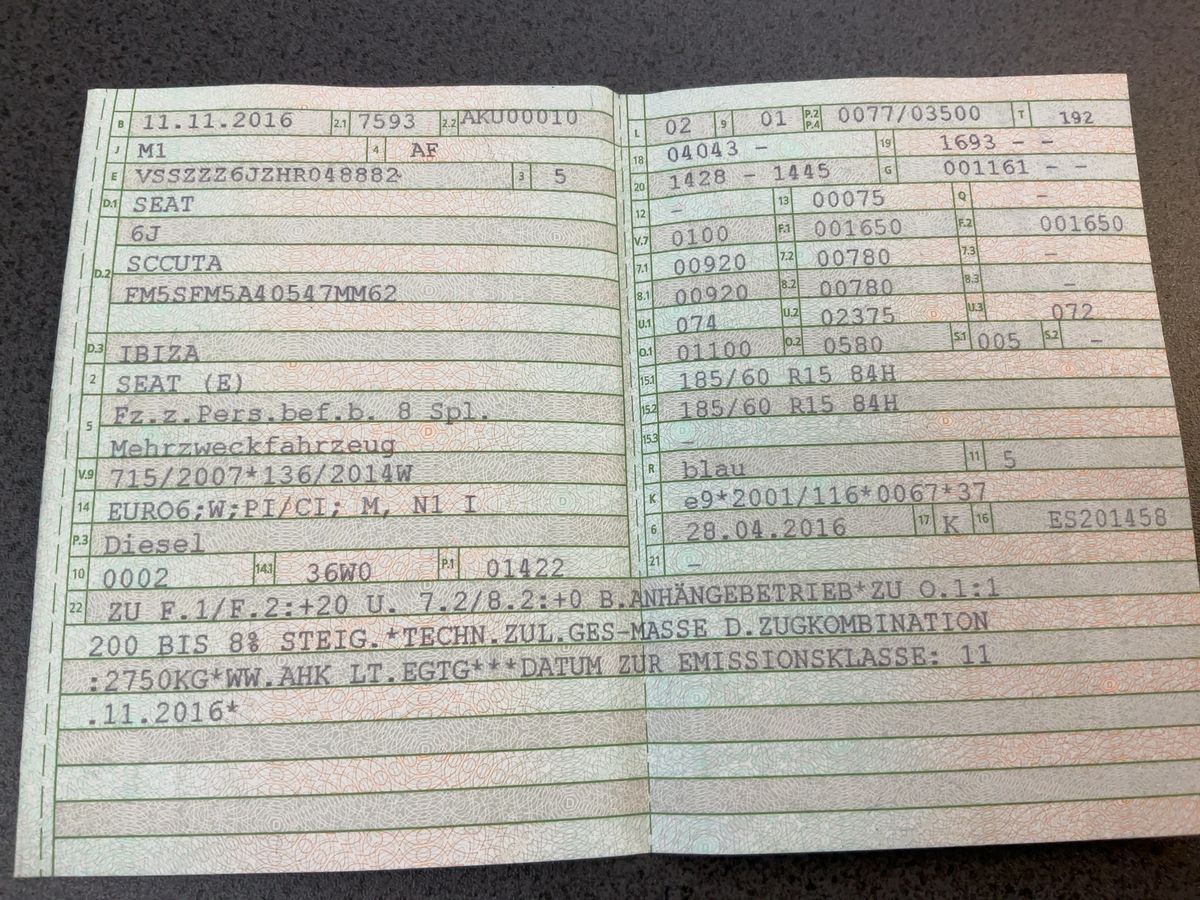 B 11.11.2016 2.1 7593 2.2 AKU00010
J M1 4 AF
E VSSZZZ6JZHR048882 3 5
D.1 SEAT
6J
D.2 SCCUTA
FM5SFM5A40547MM62
D.3 IBIZA
2 SEAT (E)
5 Fz.z.Pers.bef.b. 8 Spl.
Mehrzweckfahrzeug
V.9 715/2007*136/2014W
14 EURO6;W;PI/CI; M, N1 I
P.3 Diesel
10 0002 14.1 36W0 P.1 01422
L 02 9 01 P.2 P.4 0077/03500 T 192
18 04043 – 19 1693 – –
20 1428 – 1445 G 001161 – –
12 – 13 00075 Q –
V.7 0100 F.1 001650 F.2 001650
7.1 00920 7.2 00780 7.3 –
8.1 00920 8.2 00780 8.3 –
U.1 074 U.2 02375 U.3 072
O.1 01100 O.2 0580 S.1 005 S.2 –
15.1 185/60 R15 84H
15.2 185/60 R15 84H
15.3 –
R blau 11 5
K e9*2001/116*0067*37
6 28.04.2016 17 K 16 ES201458
21 –
22 ZU F.1/F.2:+20 U. 7.2/8.2:+0 B.ANHÄNGEBETRIEB*ZU O.1:1
200 BIS 8% STEIG.*TECHN.ZUL.GES-MASSE D.ZUGKOMBINATION
:2750KG*WW.AHK LT.EGTG***DATUM ZUR EMISSIONSKLASSE: 11
.11.2016*